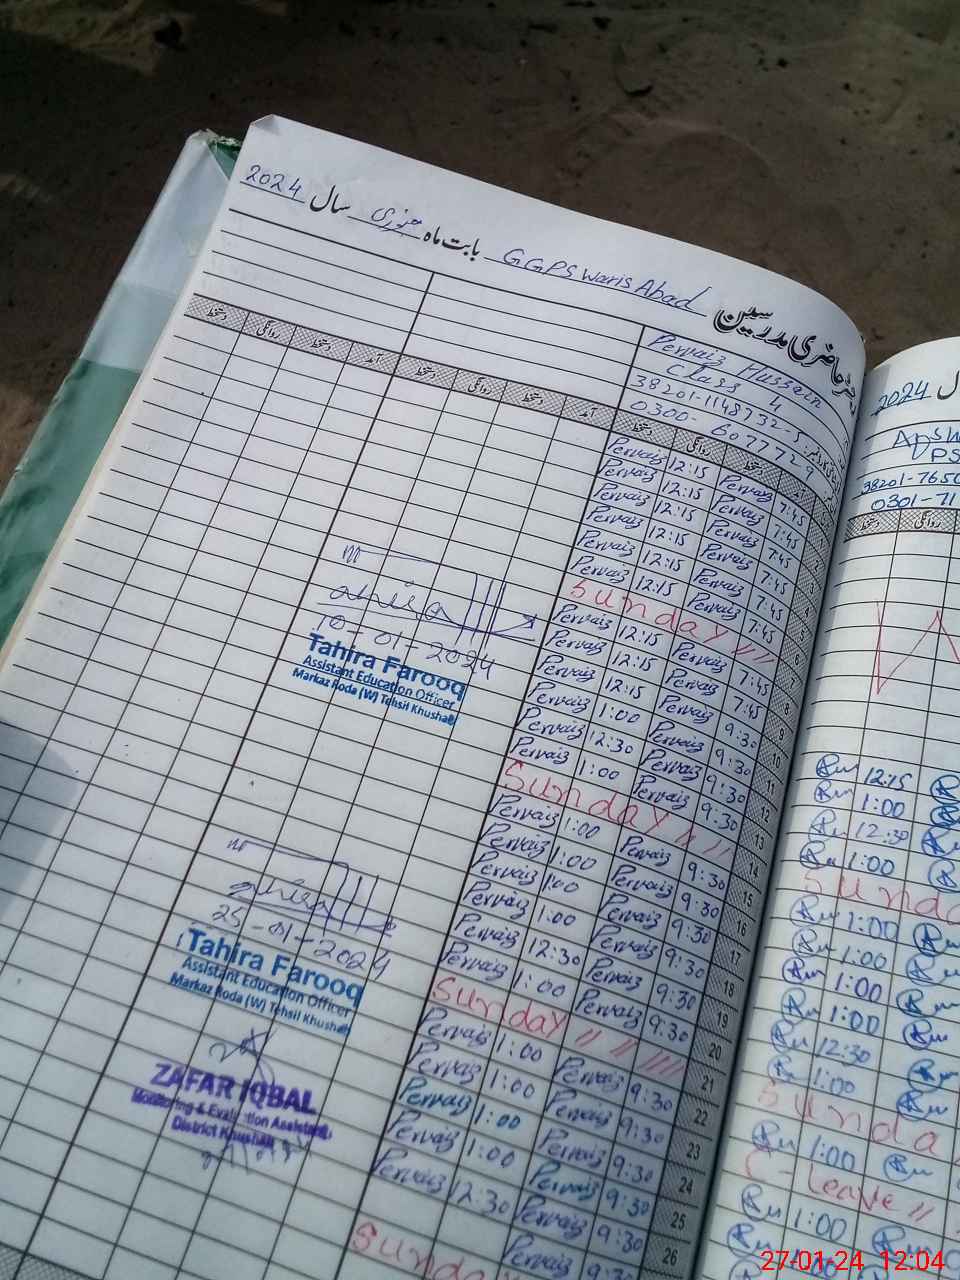 رجسٹر حاضری مدرسین GGPS Waris Abad بابت ماہ جنوری سال 2024
Pervaiz Hussain
Class 4
38201-1148732-5
0300-6077729
آمد دستخط روانگی دستخط آمد دستخط روانگی دستخط آمد دستخط روانگی دستخط
Pervaiz 12:15 Pervaiz 7:45
Pervaiz 12:15 Pervaiz 7:45
Pervaiz 12:15 Pervaiz 7:45
Pervaiz 12:15 Pervaiz 7:45 4
Pervaiz 12:15 Pervaiz 7:45 5
Pervaiz 12:15 Pervaiz 7:45 6
Sunday 7
Pervaiz 12:15 Pervaiz 7:45 8
Pervaiz 12:15 Pervaiz 7:45 9
Pervaiz 12:15 Pervaiz 9:30 10
Pervaiz 1:00 Pervaiz 9:30 11
Pervaiz 12:30 Pervaiz 9:30 12
Pervaiz 1:00 Pervaiz 9:30 13
Sunday 14
Pervaiz 1:00 Pervaiz 9:30 15
Pervaiz 1:00 Pervaiz 9:30 16
Pervaiz 1:00 Pervaiz 9:30 17
Pervaiz 1:00 Pervaiz 9:30 18
Pervaiz 12:30 Pervaiz 9:30 19
Pervaiz 1:00 Pervaiz 9:30 20
Sunday 21
Pervaiz 1:00 Pervaiz 9:30 22
Pervaiz 1:00 Pervaiz 9:30 23
Pervaiz 1:00 Pervaiz 9:30 24
Pervaiz 1:00 Pervaiz 9:30 25
Pervaiz 12:30 Pervaiz 9:30 26
Pervaiz 9:30
Sunday
10-01-2024
Tahira Farooq
Assistant Education Officer
Markaz Roda (W) Tehsil Khushab
25-01-2024
Tahira Farooq
Assistant Education Officer
Markaz Roda (W) Tehsil Khushab
ZAFAR IQBAL
Monitoring & Evaluation Assistant
District Khushab
2024
38201-7650
0301-71
دستخط روانگی
12:15
1:00
12:30
1:00
Sunda
1:00
1:00
1:00
1:00
12:30
1:00
Sunda
1:00
C-Leave
1:00
1:00
27-01-24 12:04